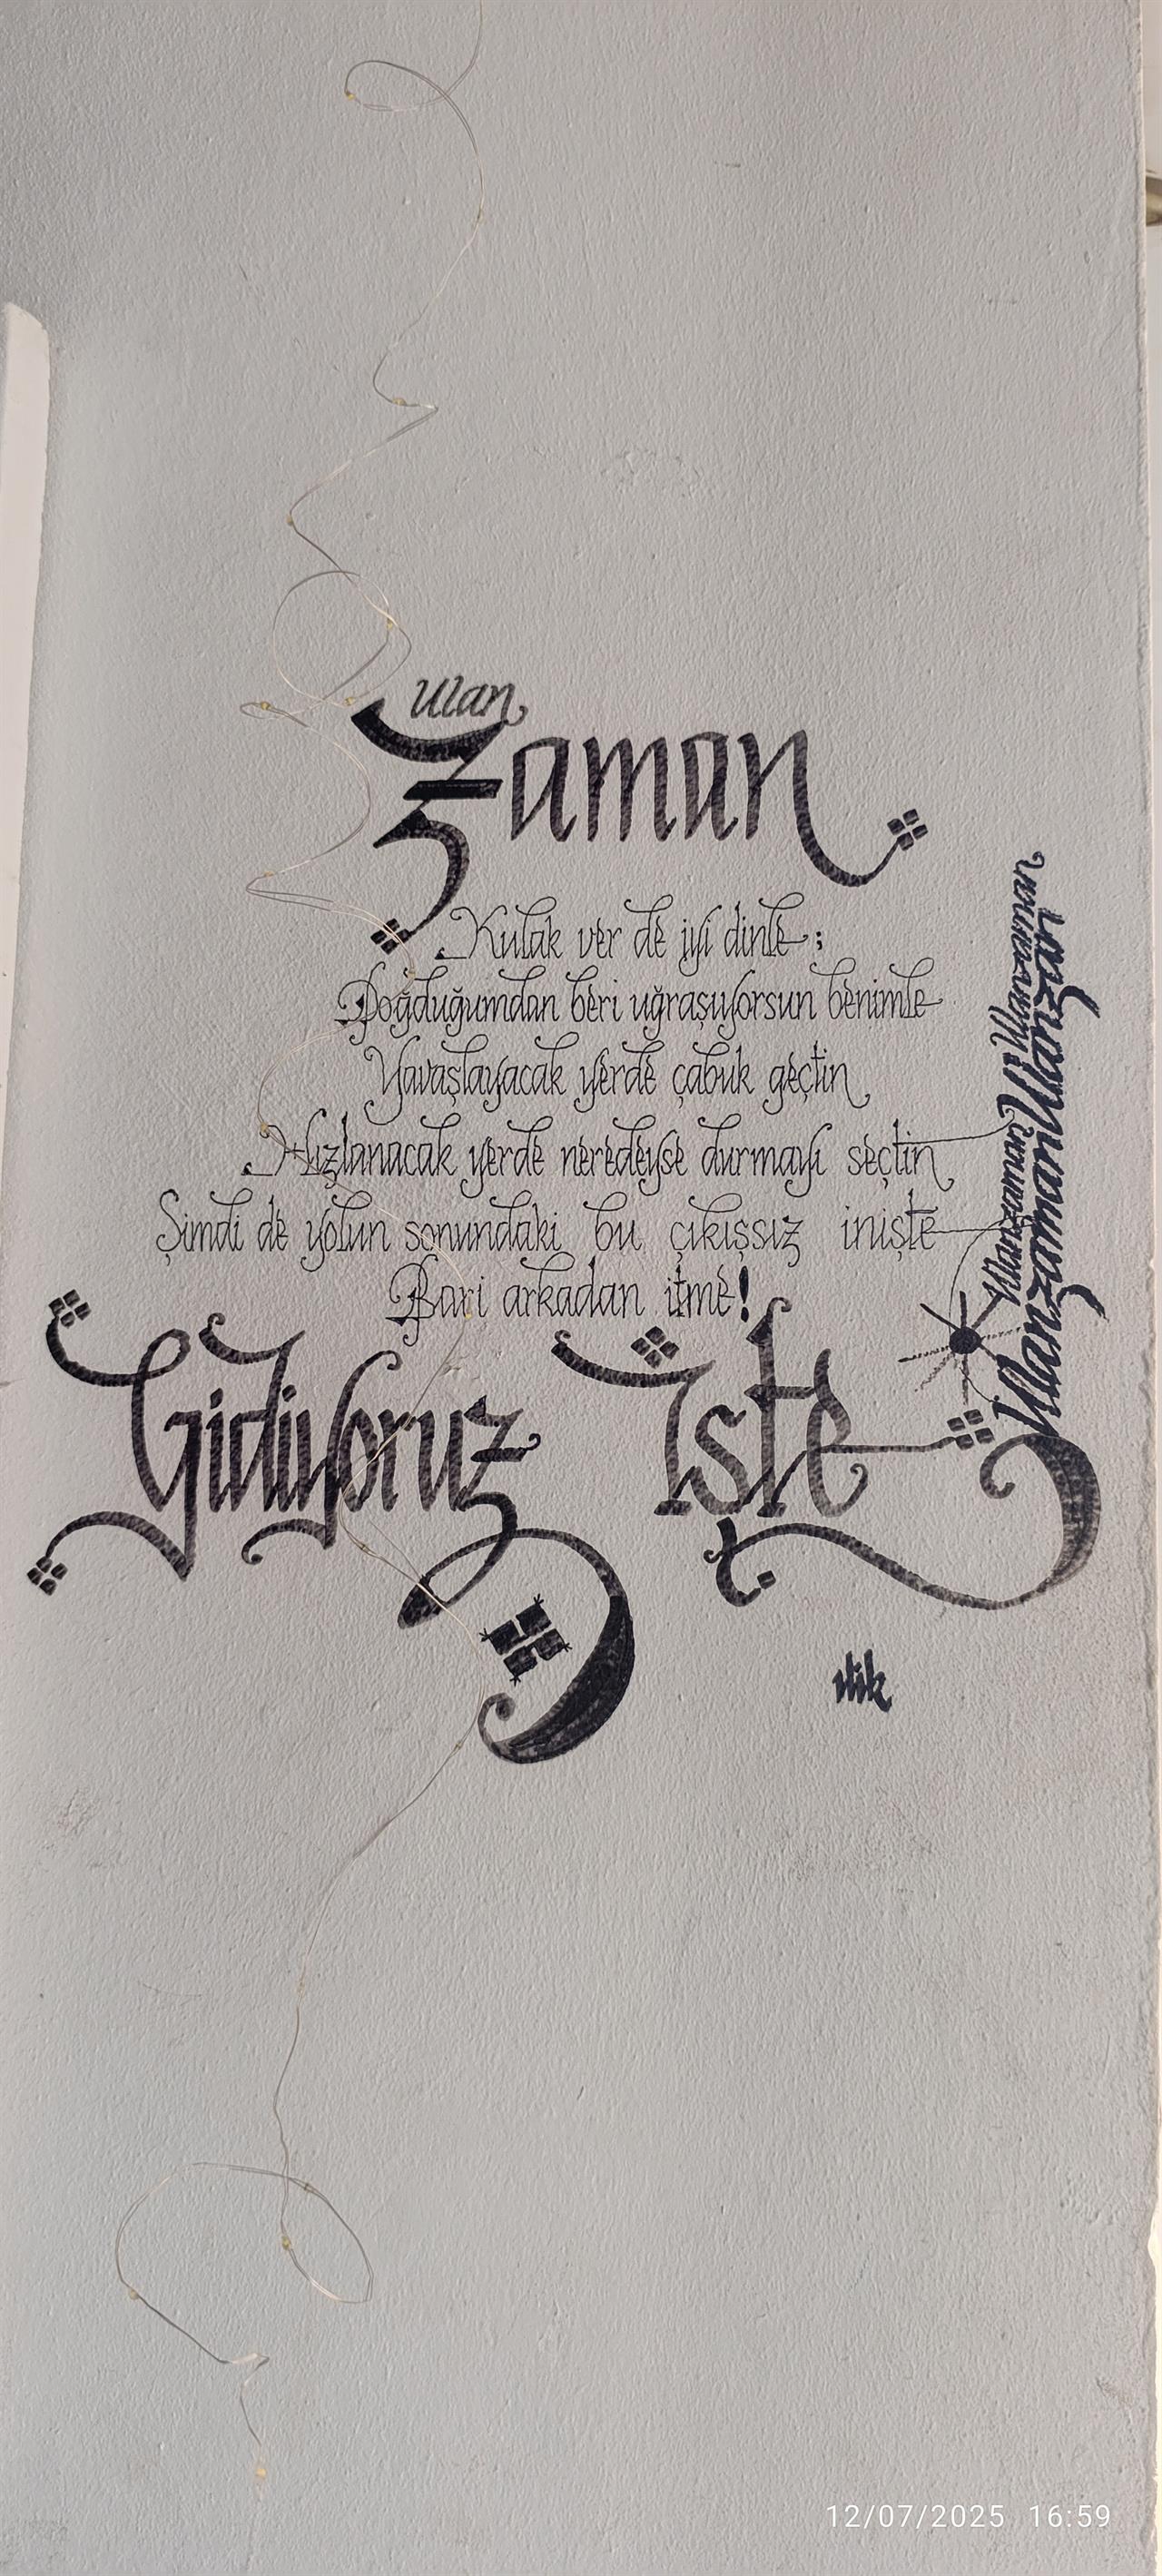 Ulan
Zaman
Kulak ver de iyi dinle ;
Doğduğumdan beri uğraşıyorsun benimle
Yavaşlayacak yerde çabuk geçtin
Hızlanacak yerde neredeyse durmayı seçtin
Şimdi de yolun sonundaki bu çıkışsız inişte
Bari arkadan itme!
Gidiyoruz İşte
Ulanzaman Ulanzaman
UlanzamanUlanzaman
12/07/2025 16:59